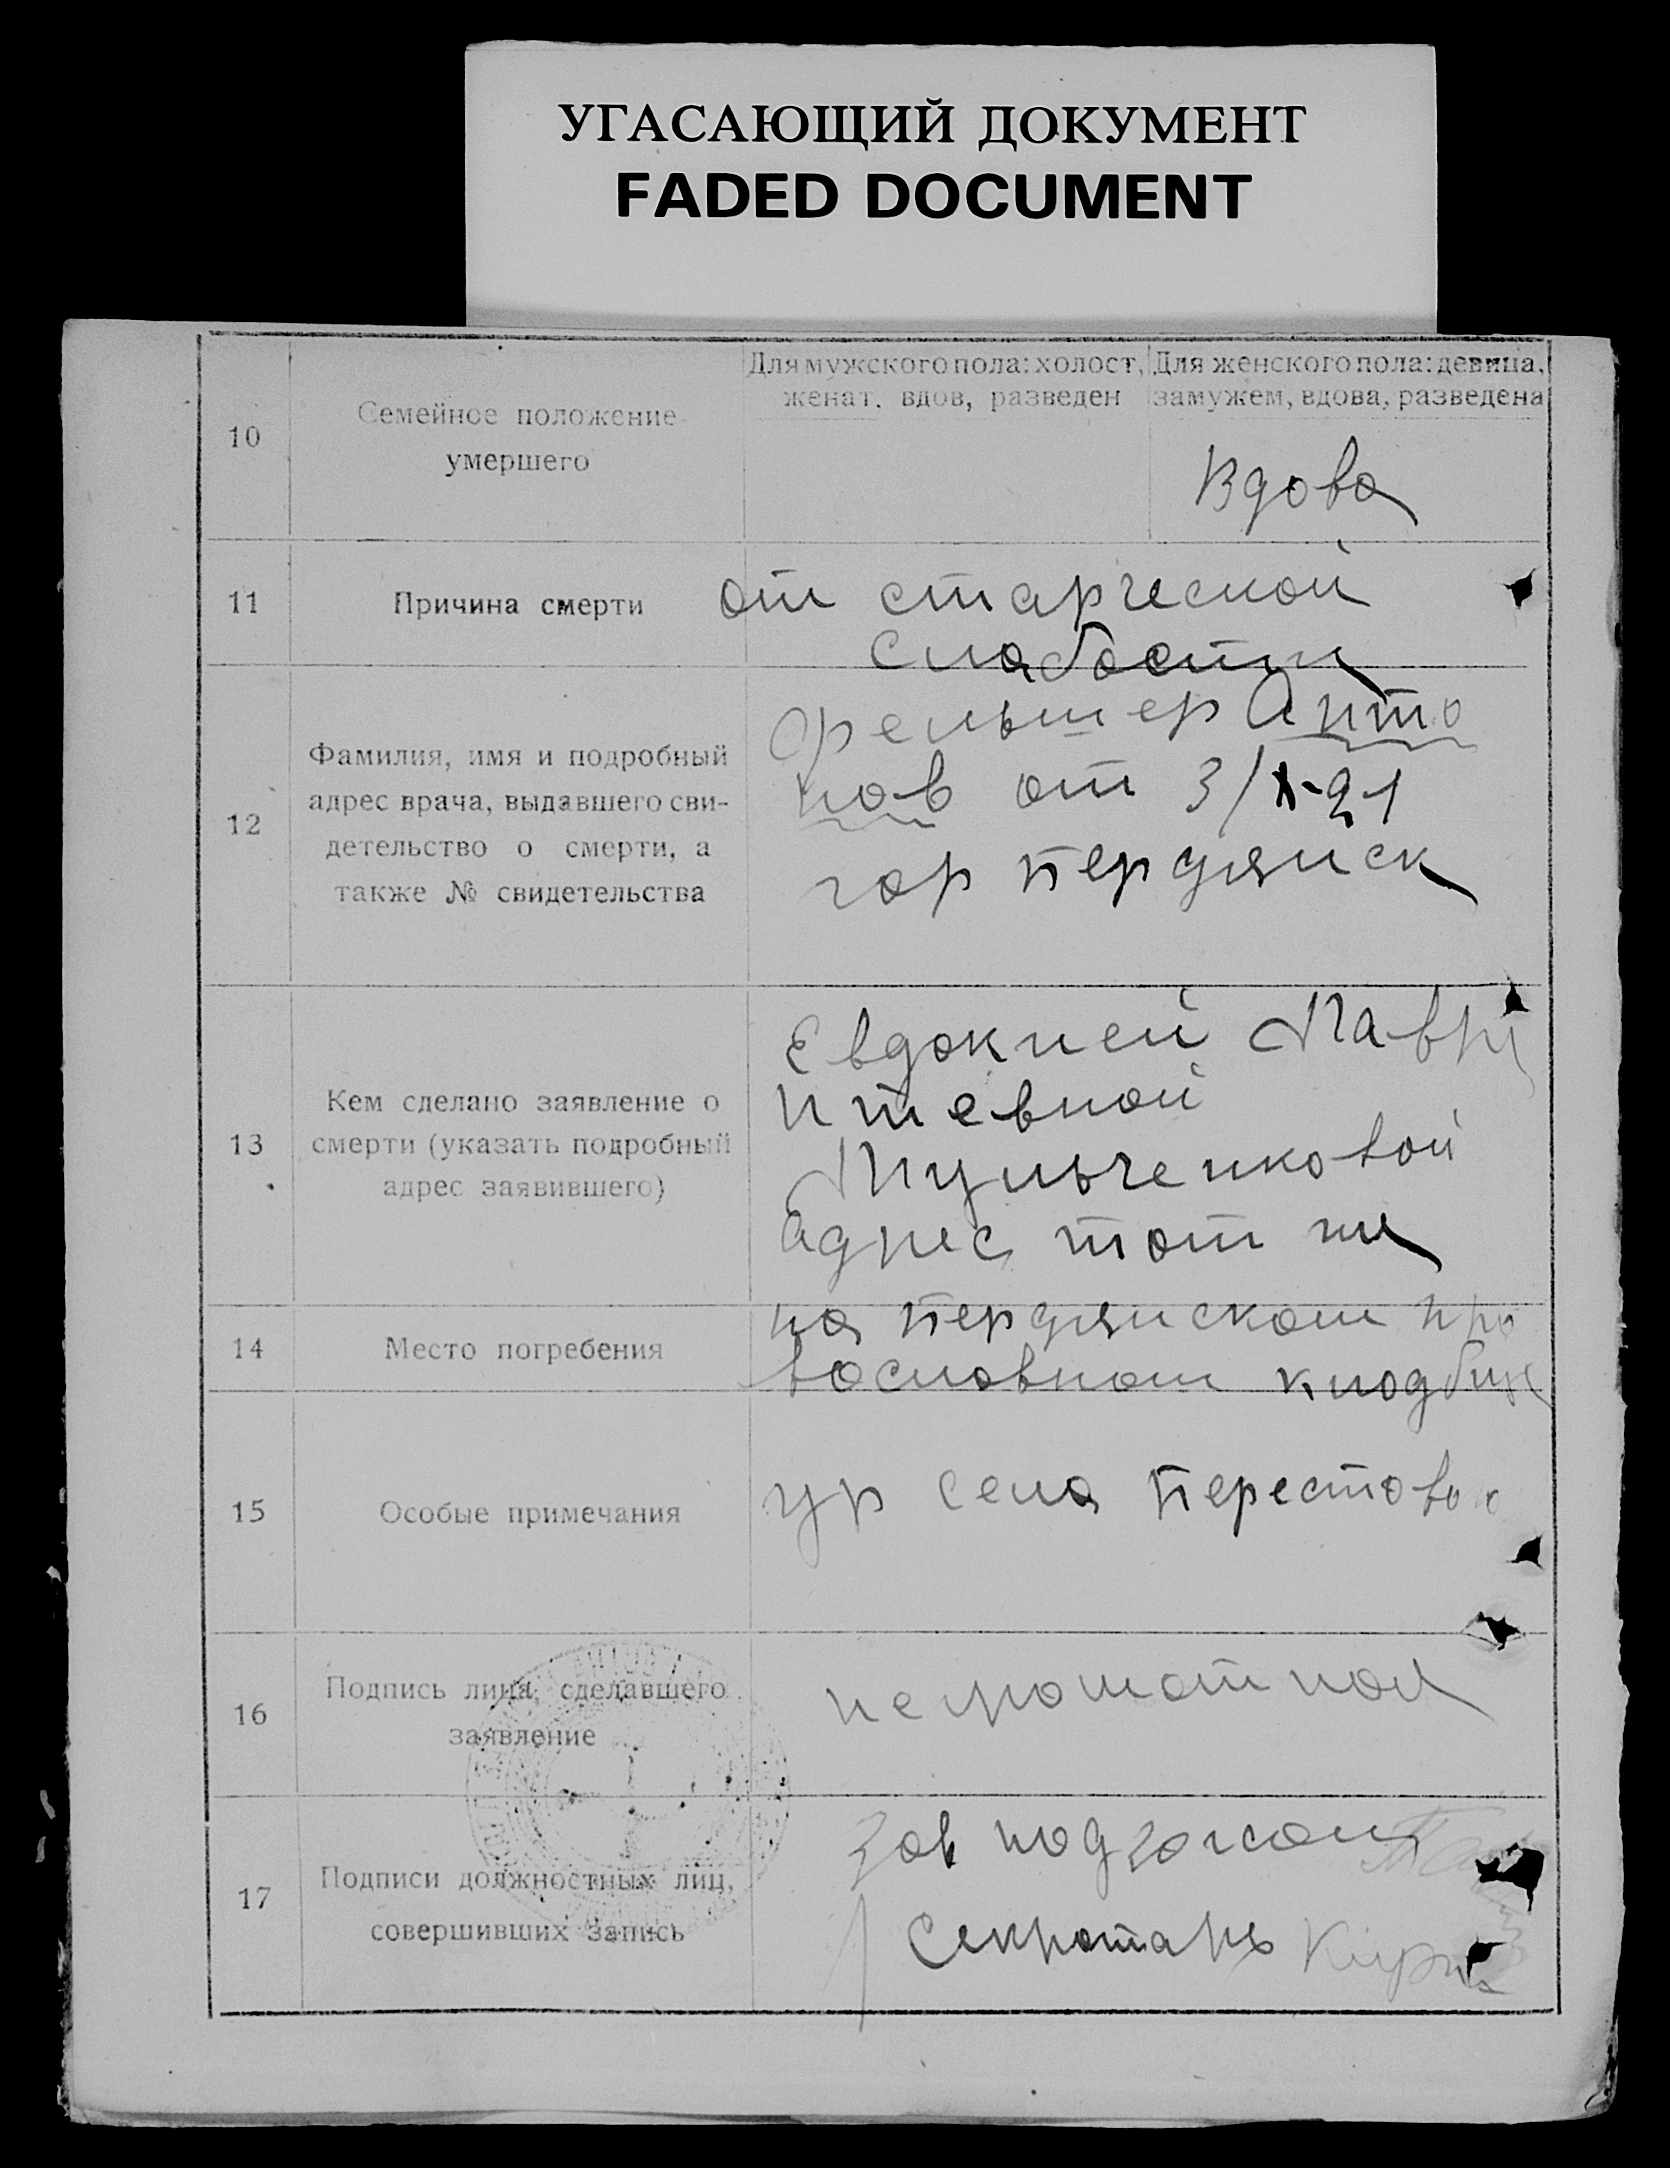 УГАСАЮЩИЙ ДОКУМЕНТ
FADED DOCUMENT
10
Семейное положение
умершего
Для мужского пола: холост,
женат, вдов, разведен
Для женского пола: девица,
замужем, вдова, разведена
Вдова
11
Причина смерти
от старческой
слабости
12
Фамилия, имя и подробный
адрес врача, выдавшего сви-
детельство о смерти, а
также № свидетельства
Фельшер Анто
нов от 3/X-21
гор Бердянск
13
Кем сделано заявление о
смерти (указать подробный
адрес заявившего)
Евдокией Лаври
нтевной
адрес тот же
14
Место погребения
на Бердянском пра
вославном кладбище
15
Особые примечания
ур села
16
Подпись лица, сделавшего
заявление
неграматная
17
Подписи должностных лиц,
совершивших запись
Зав подзагсом
Секротарь